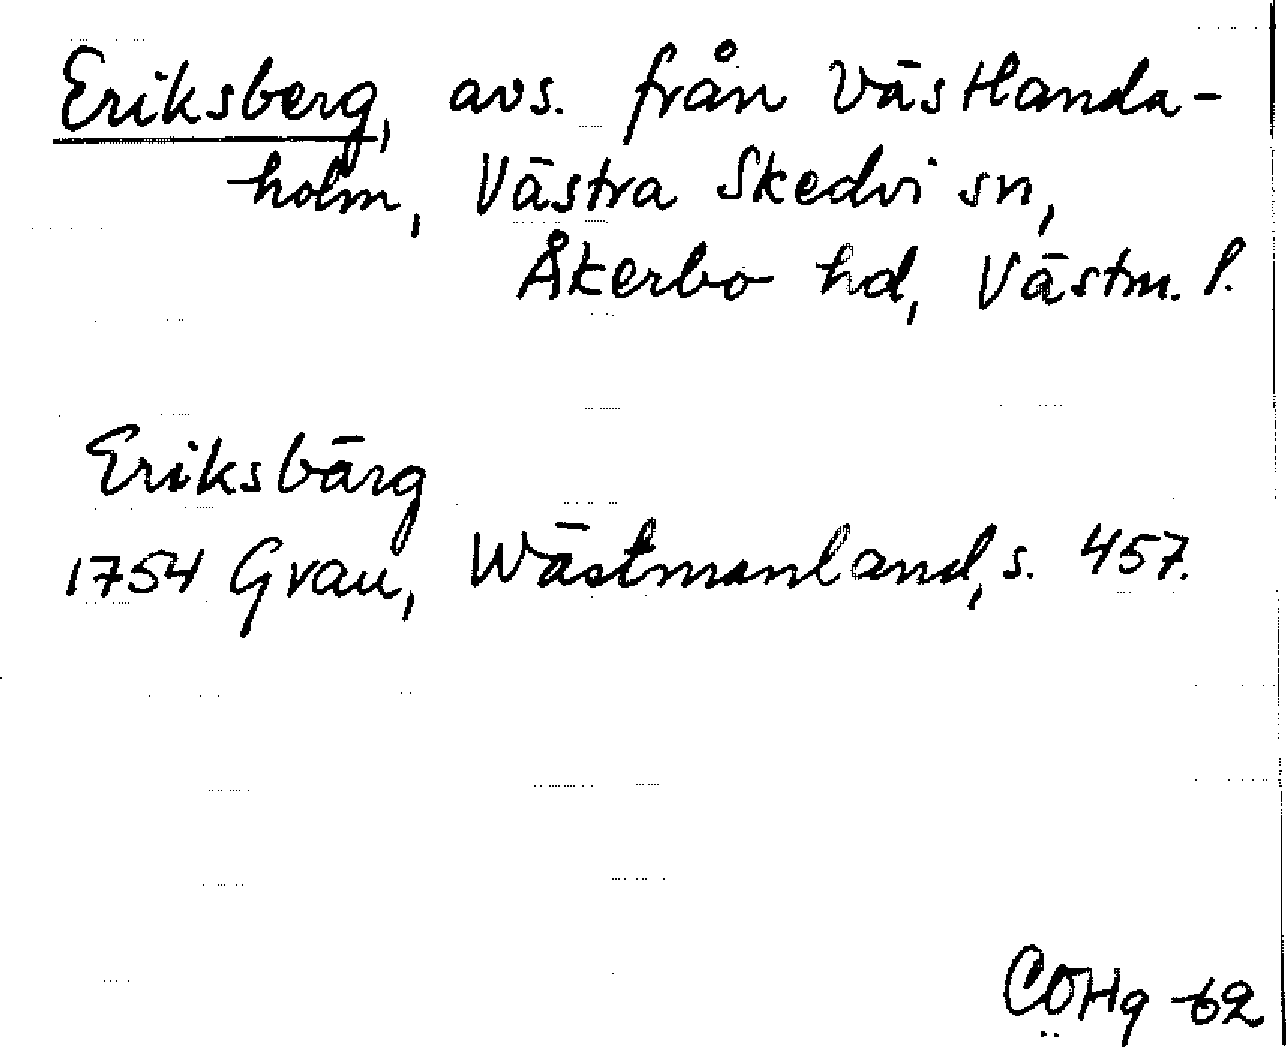 Eriksberg, avs. från Västlanda-
holm, Västra Skedvi sn,
Åkerbo hd, Västm. l.
Eriksbärg
1754 Grau, Wästmanland, s. 457.
CÖHg -62